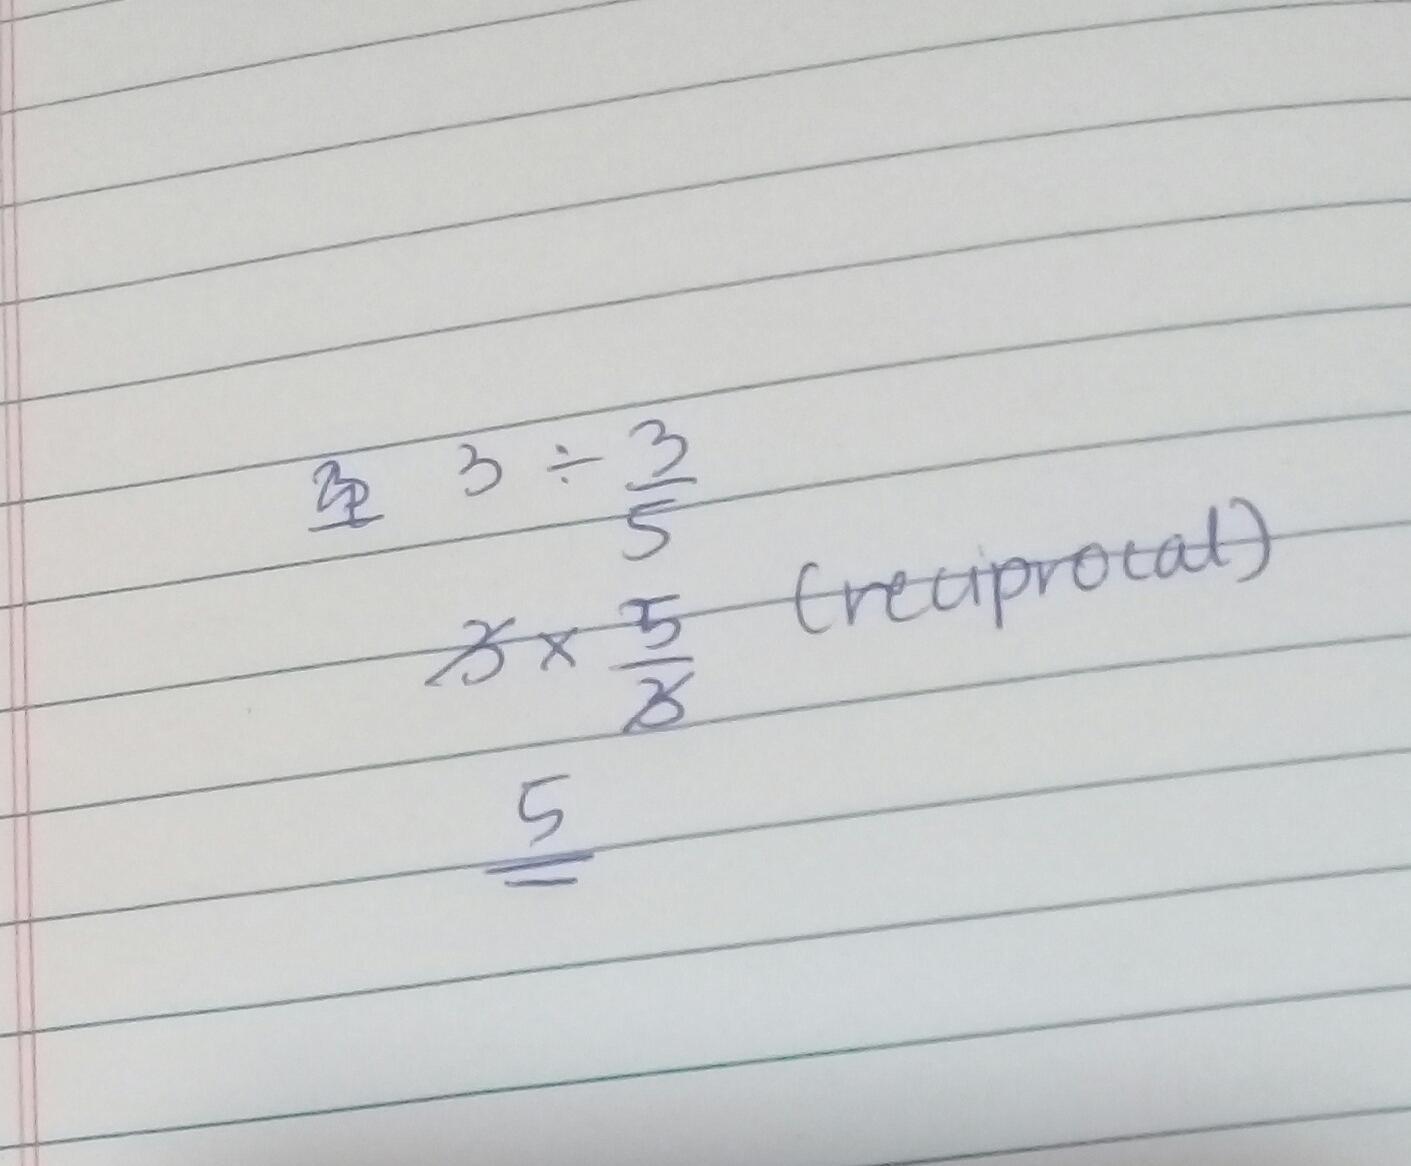 3 ÷ 3/5
3 × 5/3 (reciprocal)
5